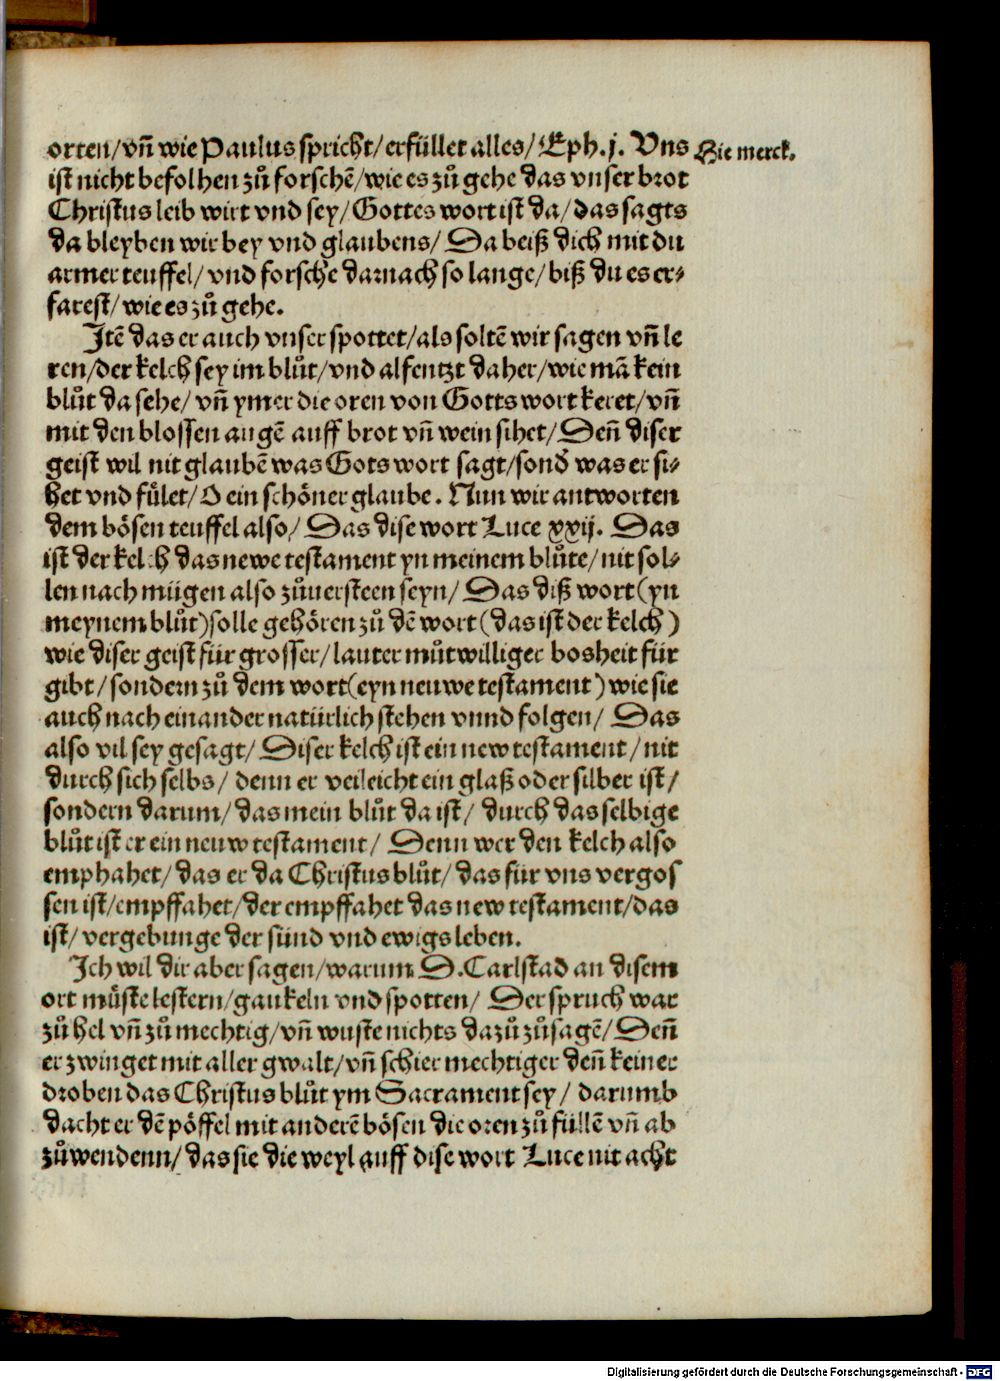 orten/ vn̄ wie Paulus spricht/ erfüllet alles/ Eph. j. Vns
Hie merck.
ist nicht befolhen zů forschē/ wie es zů gehe das vnser brot
Christus leib wirt vnd sey/ Gottes wort ist da/ das sagts
da bleyben wir bey vnd glaubens/ Da beiß dich mit du
armer teuffel/ vnd forsche darnach so lange/ biß du es er⸗
farest/ wie es zů gehe.
Itē das er auch vnser spottet/ als soltē wir sagen vn̄ le
ren/ der kelch sey im blůt/ vnd alfentzt daher/ wie mā kein
blůt da sehe/ vn̄ ymer die oren von Gotts wort keret/ vn̄
mit den blossen augē auff brot vn̄ wein sihet/ Den̄ diser
geist wil nit glaubē was Gots wort sagt/ sond̕ was er si⸗
het vnd fület/ O ein schöner glaube. Nun wir antworten
dem bösen teuffel also/ Das dise wort Luce xxij. Das
ist der kelch das newe testament yn meinem blůte/ nit sol⸗
len nach mügen also zůuersteen seyn/ Das diß wort (yn
meynem blůt) solle gehören zů dē wort (das ist der kelch)
wie diser geist für grosser/ lauter můtwilliger bosheit für
gibt/ sondern zů dem wort (eyn neuwe testament) wie sie
auch nach einander natürlich stehen vnnd folgen/ Das
also vil sey gesagt/ Diser kelch ist ein new testament/ nit
durch sich selbs/ denn er veileicht ein glaß oder silber ist/
sondern darum/ das mein blůt da ist/ durch das selbige
blůt ist er ein neuw testament/ Denn wer den kelch also
emphahet/ das er da Christus blůt/ das für vns vergos
sen ist/ empffahet/ der empffahet das new testament/ das
ist/ vergebunge der sünd vnd ewigs leben.
Ich wil dir aber sagen/ warum D. Carlstad an disem
ort müste lestern/ gaukeln vnd spotten/ Der spruch war
zů hel vn̄ zů mechtig/ vn̄ wuste nichts dazů zůsagē/ Den̄
er zwinget mit aller gwalt/ vn̄ schier mechtiger den̄ keiner
droben das Christus blůt ym Sacrament sey/ darumb
dacht er dē pöffel mit anderē bösen die oren zů füllē vn̄ ab
zůwendenn/ das sie die weyl auff dise wort Luce nit acht
Digitalisierung gefördert durch die Deutsche Forschungsgemeinschaft - DFG